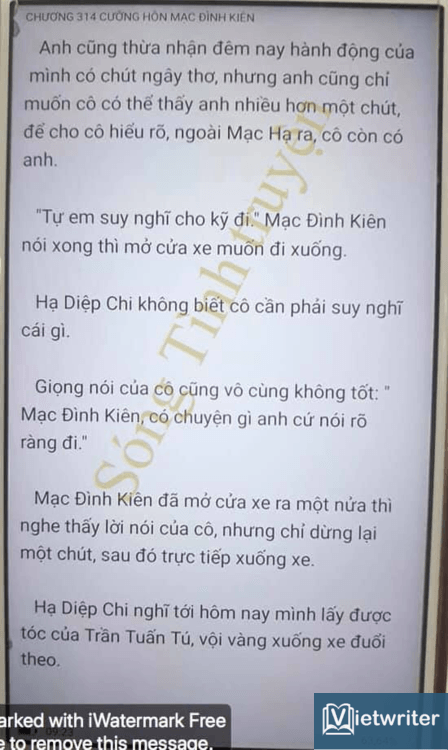 CHƯƠNG 314 CƯỜNG HÔN MẠC ĐÌNH KIÊN
Anh cũng thừa nhận đêm nay hành động của
mình có chút ngây thơ, nhưng anh cũng chỉ
muốn cô có thể thấy anh nhiều hơn một chút,
để cho cô hiểu rõ, ngoài Mạc Hạ ra, cô còn có
anh.
"Tự em suy nghĩ cho kỹ đi." Mạc Đình Kiên
nói xong thì mở cửa xe muốn đi xuống.
Hạ Diệp Chi không biết cô cần phải suy nghĩ
cái gì.
Giọng nói của cô cũng vô cùng không tốt: "
Mạc Đình Kiên, có chuyện gì anh cứ nói rõ
ràng đi."
Mạc Đình Kiên đã mở cửa xe ra một nửa thì
nghe thấy lời nói của cô, nhưng chỉ dừng lại
một chút, sau đó trực tiếp xuống xe.
Hạ Diệp Chi nghĩ tới hôm nay mình lấy được
tóc của Trần Tuấn Tú, vội vàng xuống xe đuổi
theo.
Sóng Tình truyện
09:23
arked with iWatermark Free
e to remove this message.
Vietwriter